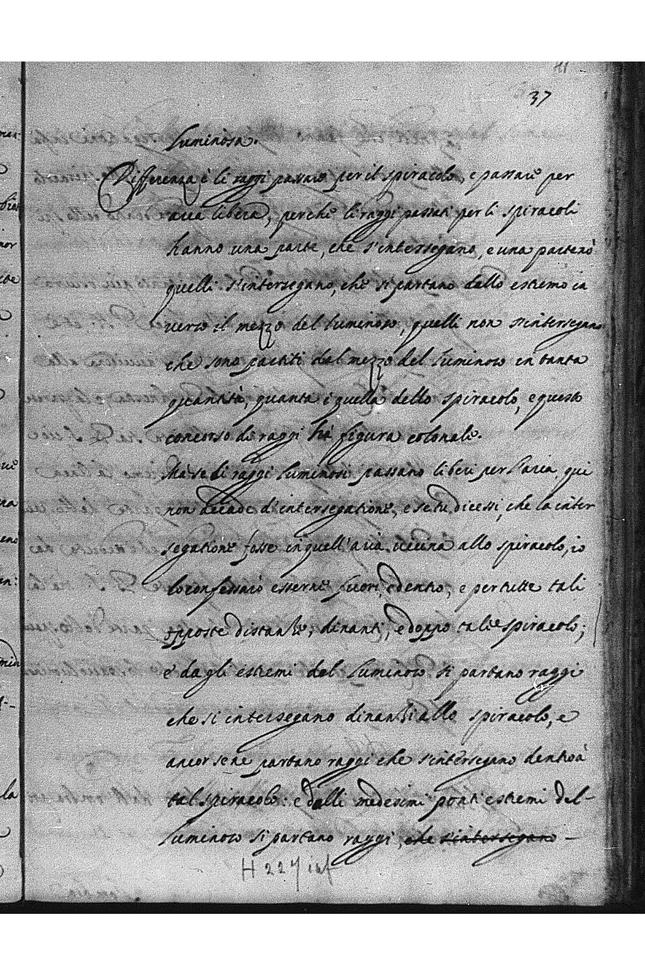 37
Luminosa.
Differenza è li raggi passare per il spiracolo, e passare per
aria libera, perche li raggi passati per li spiracoli
hanno una parte, che s'intersegano, e una parte nò
quelli s'intersegano, che si partano dallo estremo in
verso il mezzo del luminoso, quelli non s'intersegano
che sono partiti dal mezzo del luminoso in tanta
quantità, quanta è quella dello spiracolo, e questo
concorso de raggi hà figura colonale.
Ma se li raggi luminosi passano liberi per l'aria, qui
non accade d'intersegatione, e se tu dicessi, che la inter
segatione fosse in quell'aria vicina allo spiracolo, io
lo confessarò esserne fuori, e dentro, e per tutte tali
opposte distanze, dinanti, e doppo tale spiracolo;
e dagli estremi del luminoso si partano raggi
che si intersegano dinanzi allo spiracolo, e
ancor se ne partano raggi che s'intersegano dentro à
tal spiracolo: e dalli medesimi ponti estremi del-
luminoso si partano raggi, che s'intersegano -
H 227 inf